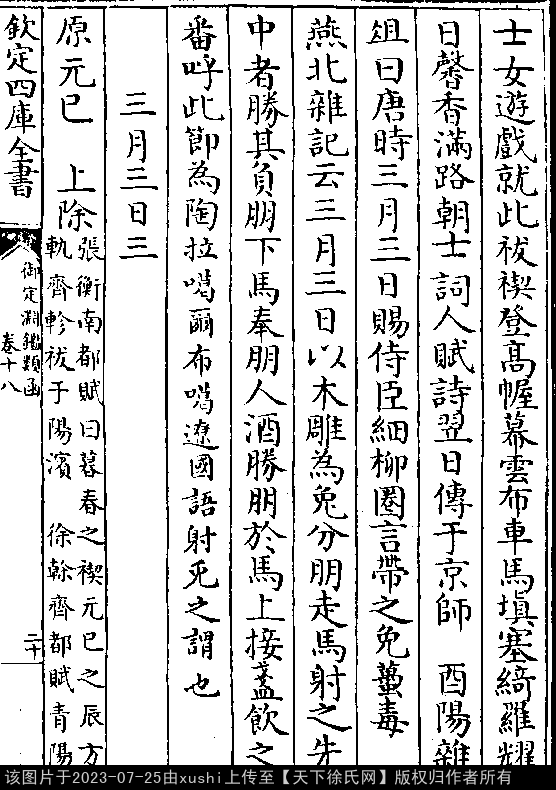 士女遊戲就此祓禊登高幄幕雲布車馬填塞綺羅耀
日馨香滿路朝士詞人賦詩翌日傳于京師　酉陽雜
俎曰唐時三月三日賜侍臣細柳圈言帶之免蠆毒
燕北雜記云三月三日以木雕為兔分朋走馬射之先
中者勝其負朋下馬奉朋人酒勝朋於馬上接盞飲之
番呼此節為陶拉噶爾布噶遼國語射兔之謂也
三月三日三
原元巳　上除
張衡南都賦曰暮春之禊元巳之辰方
軌齊軫祓于陽濱　徐幹齊都賦青陽
欽定四庫全書
御定淵鑑類函
卷十八
二十
该图片于2023-07-25由xushi上传至【天下徐氏网】版权归作者所有